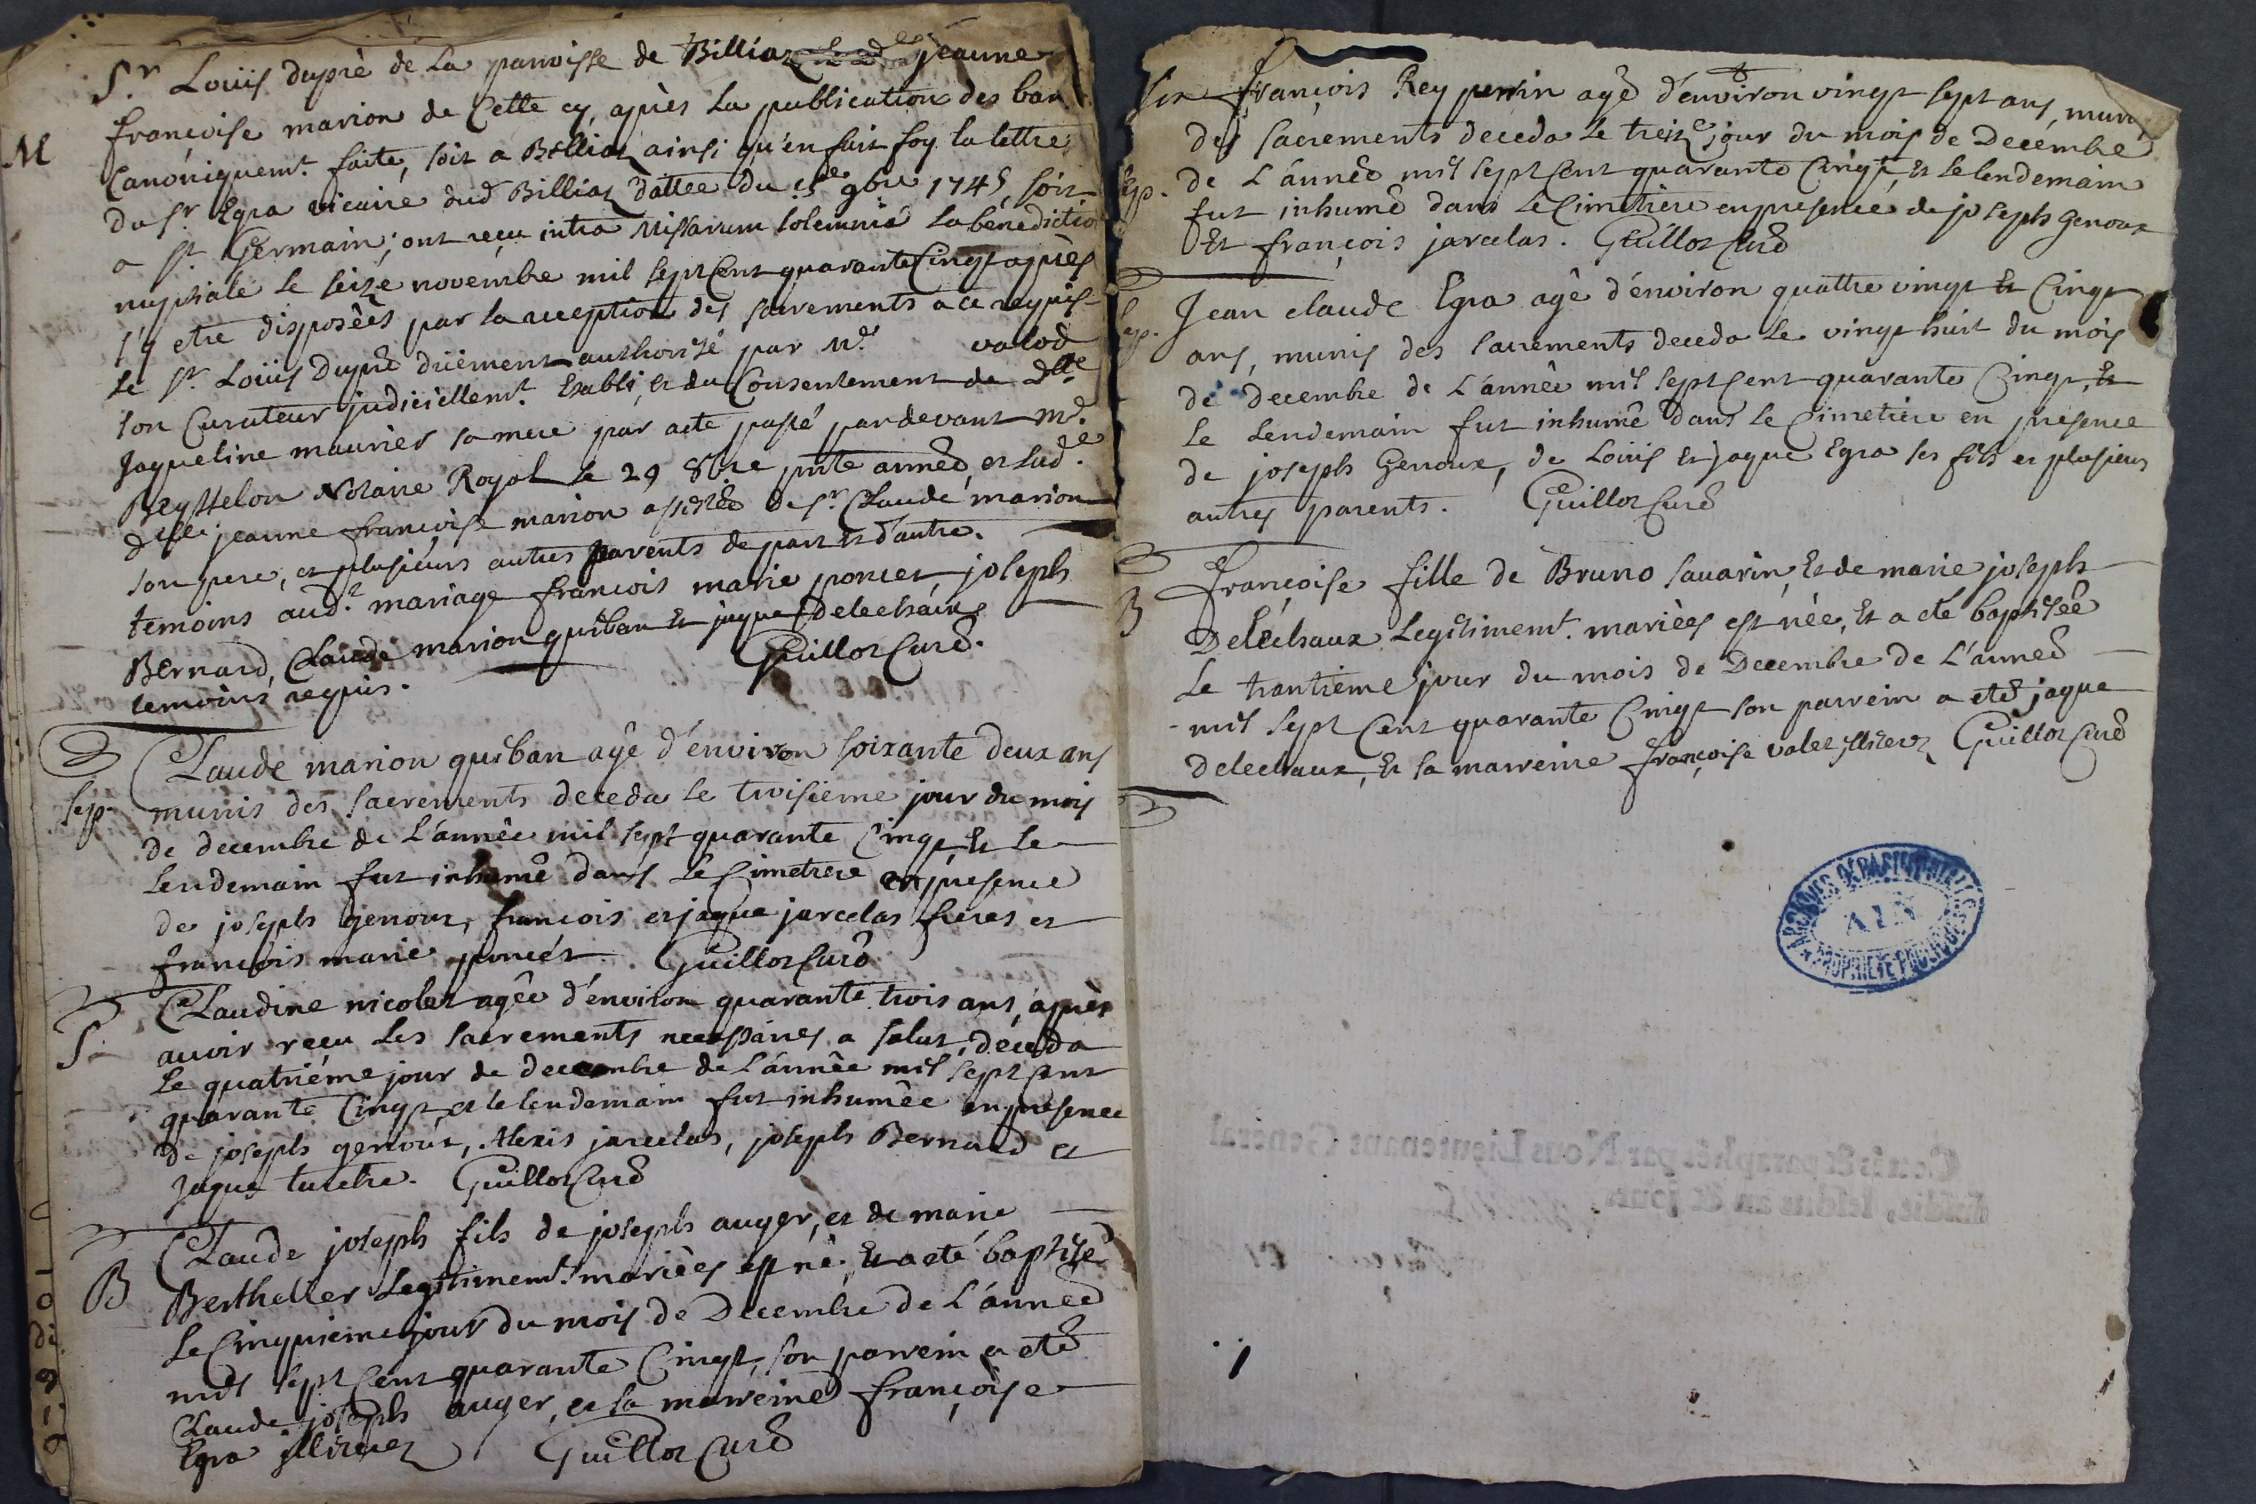 Sr. Loüis dupré de la parroisse de Billiaz jeanne
M
françoise marion de Cette cy, après la publication des ban
Canóniquemt. faite, soit a Billiaz ainsi qu'en fait foy la lettre
du Sr Egra vicaire dud Billiaz dattée du 15e 9bre 1745, soit
a St. Germain; ont reçu intra Missarum solemnia la bénedictio
nuptiale le seize novembre mil sept Cent quarante Cinq après
s'y etre disposèés par la reception des sacrements a ce requis
le Sr. Loüis Dupré düement authorisé par Me. valod
son Curateur judiciellemt. Etabli, et du Consentement de Dlle
Jaqueline maurier sa mere par acte passé pardevant me.
Beyttelon Notaire Royal le 29 8bre pnte année, et lade.
dlle jeanne françoise marion assistée de Sr. Claude marion
son pere, et plusieurs autres parents de part et d'autre.
temoins aud. mariage françois marie poncet, joseph
Bernard, Claude marion quiban Et jaque Delechaux
temoins requis. Guillot Curé.
Sep.
Claude marion quiban agê d'environ soixante deux ans
munis des sacrements deceda le troisieme jour du mois
de decembre de L'année mil sept quarante Cinq, Et le
lendemain fut inhumê dans le Cimetiere en presence
de joseph genoux, francois et jaque jarcelas freres et
françois marie poncét. Guillot Curé
S.
Claudine nicolet agêe d'environ quarante trois ans, après
avoir reçu les sacrements necessaires a salut, déceda
le quatriéme jour de decembre de L'année mil sept Cent
quarante Cinq, et le lendemain fut inhumêe en presence
de joseph genoux, Alexis jarcelas, joseph Bernard et
Jaque turche. Guillot Curé
B
Claude joseph fils de joseph auger, et de marie
Berthelier Legitimemt. mariées est né, Et a eté baptisé
le Cinquieme jour du mois de Decembre de L'année
mil sept Cent quarante Cinq, son parrein a eté
Claude joseph auger, et la marreine françoise
Egra illiterez Guillot Curé
françois Rey perrin agê d'environ vingt sept ans, muni
des sacrements deceda le treize jour du mois de Decémbre
Sep.
de L'année mil sept Cent quarante Cinq, Et le lendemain
fut inhumê dans le Cimetiere en presence de joseph Genoux
Et françois jarcelas. Guillot Curé
Sep.
Jean claude Egra agê d'énviron quattre vingt Et Cinq
ans, munis des sacrements deceda le vingt huit du mois
de decembre de L'année mil sept Cent quarante Cinq, Et
le lendemain fut inhumê dans le Cimetiere en presence
de joseph Genoux, de Loüis Et jaque Egra ses fils et plusieurs
autres parents. Guillot Curé
B
Françoise fille de Bruno savarin, Et de marie joseph
Deléchaux Legitimemt. mariées est née, Et a eté baptisée
le trantiéme jour du mois de Decembre de L'année
mil sept Cent quarante Cinq son parrein a eté jaque
delechaux, Et la marreine françoise valet illiterez Guillot Curé
ARCHIVES DÉPARTEMENTALES
AIN
PROPRIÉTÉ PUBLIQUE